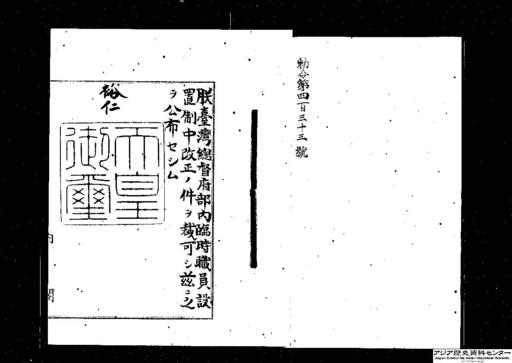 勅令第四百三十三號
朕臺灣總督府部內臨時職員設
置制中改正ノ件ヲ裁可シ茲ニ之
ヲ公布セシム
裕仁
天皇
御璽
內閣
アジア歴史資料センター
Japan Center for Asian Historical Records